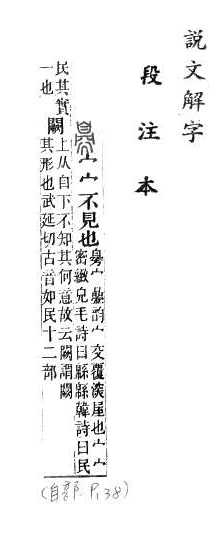 説文解字
段注本
宀宀不見也
臱宀曡韵宀交覆深屋也宀宀
密緻皃毛詩曰緜緜韓詩曰民
民其實
一也
闕
上从自下不知其何意故云闕謂闕
其形也武延切古音如民十二部
(自部 P.138)